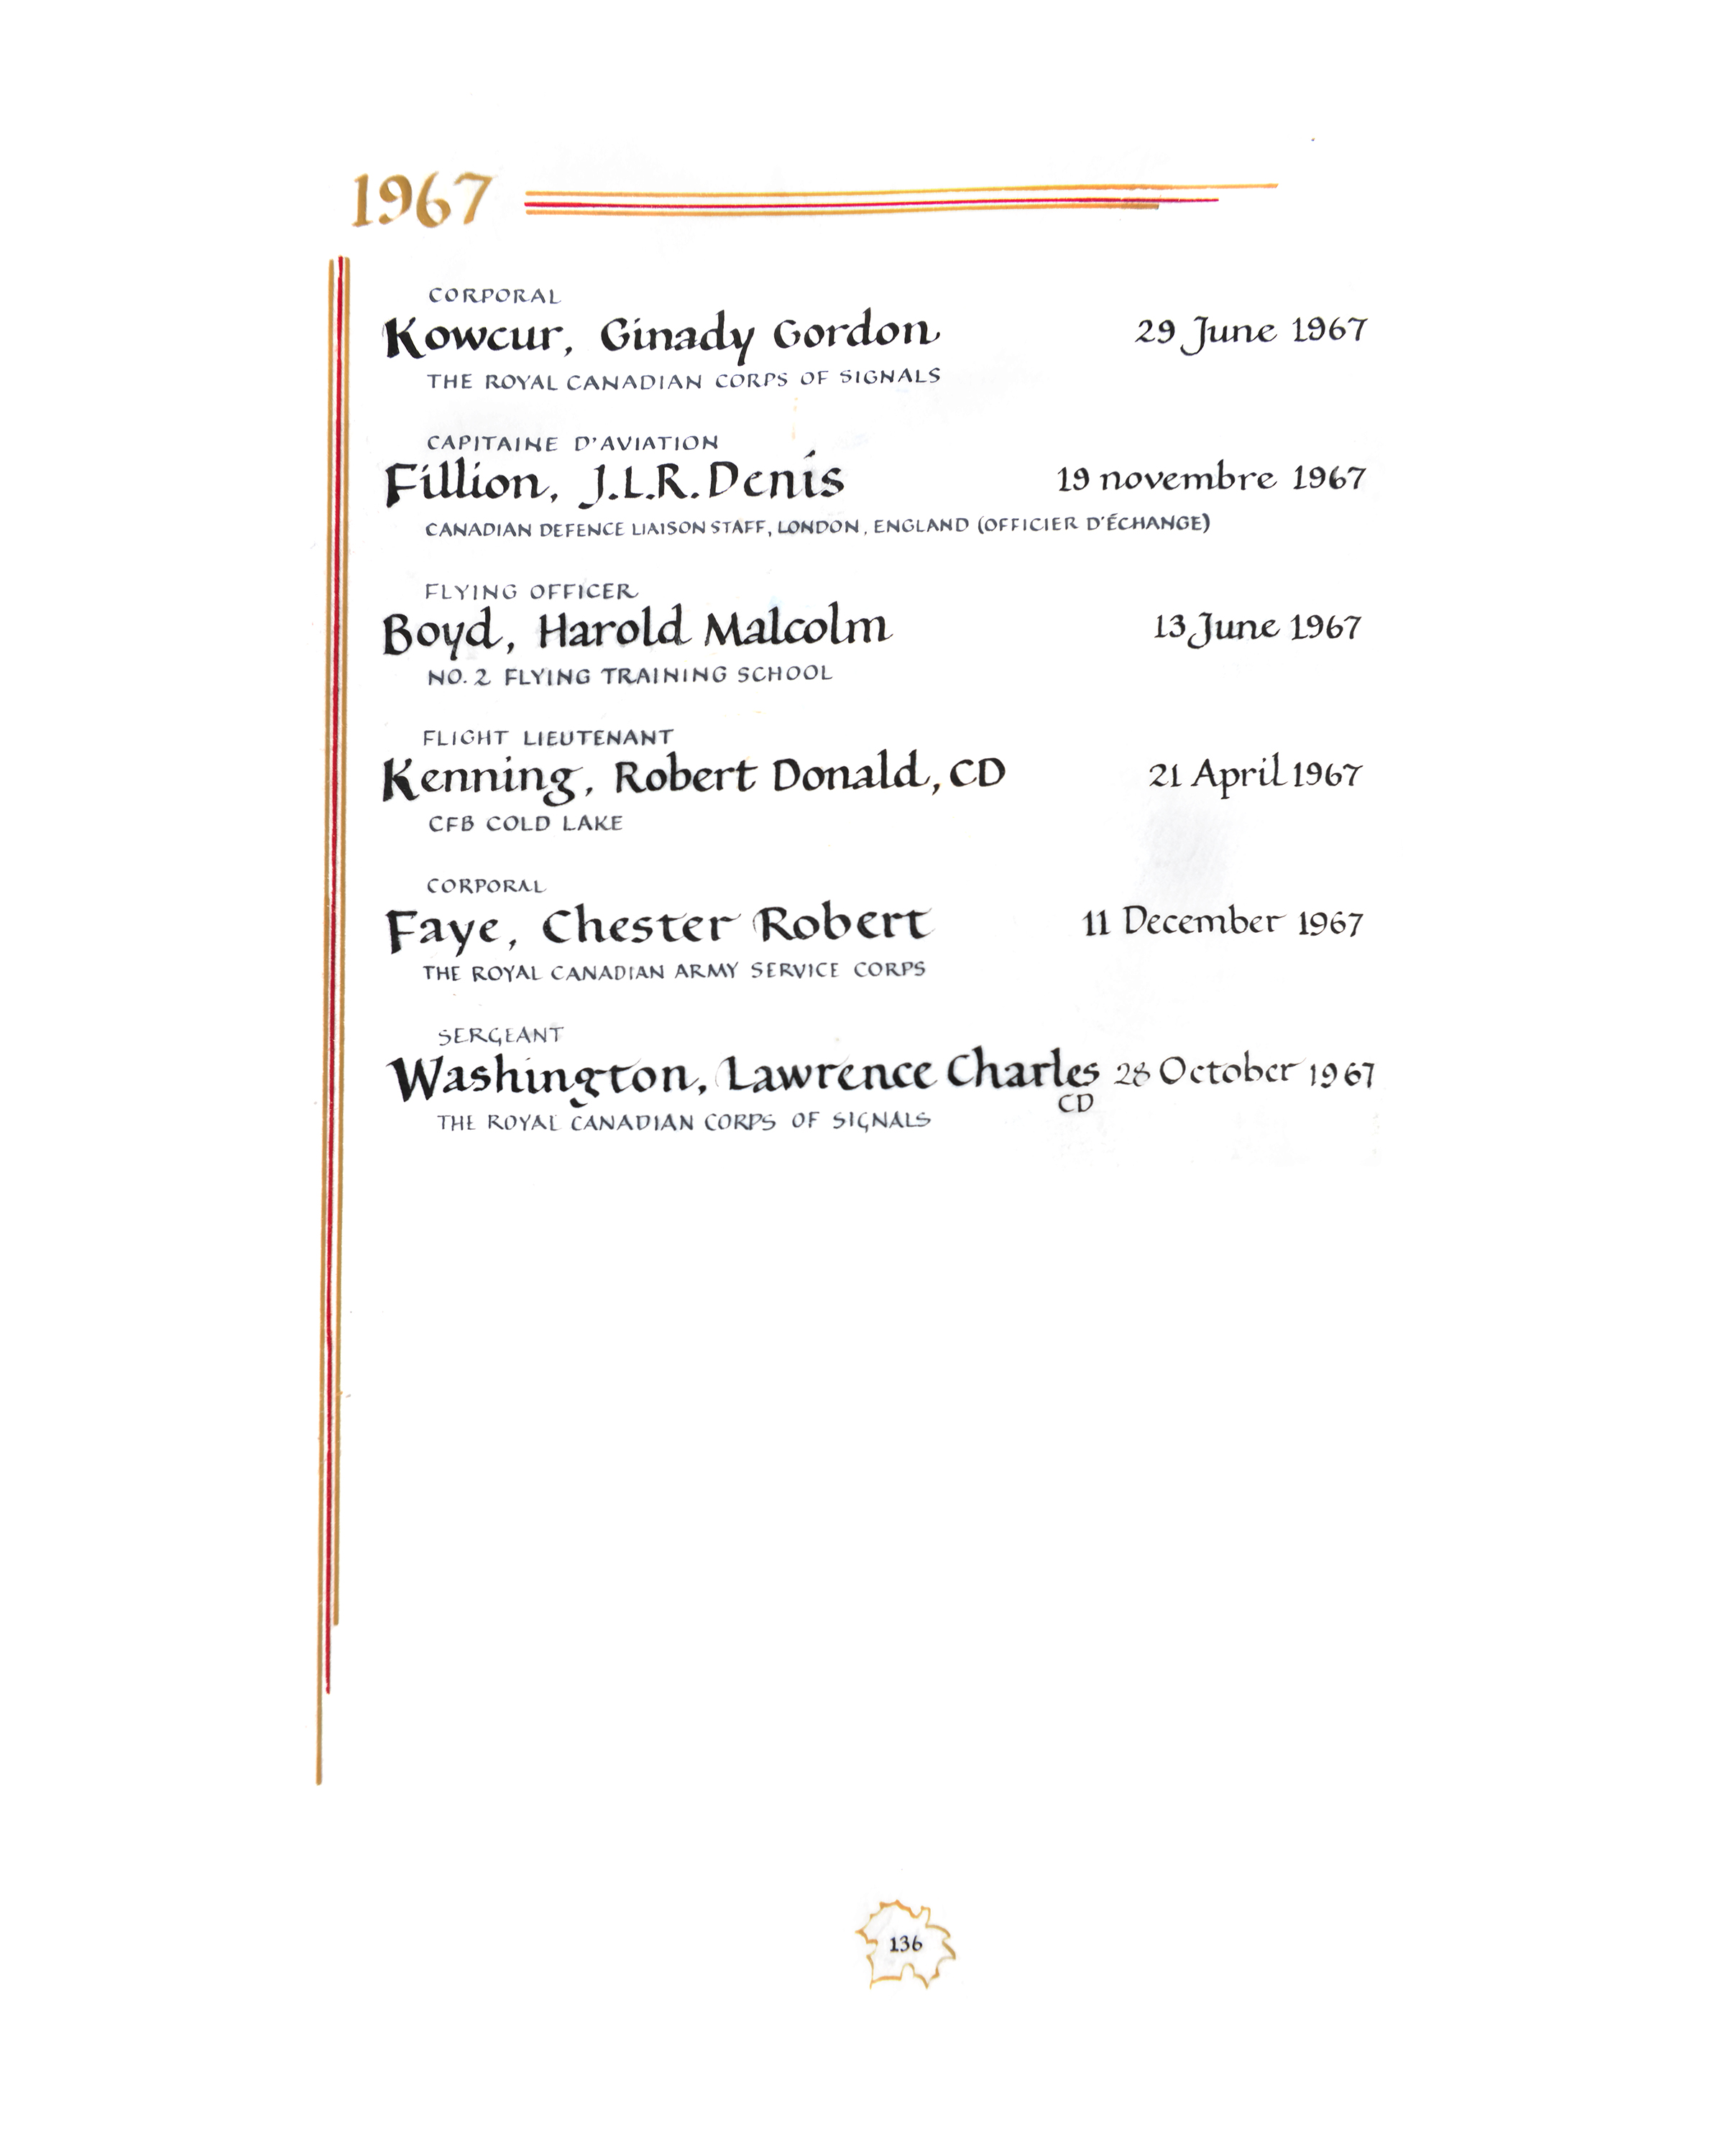 1967
CORPORAL
Kowcur, Ginady Gordon 29 June 1967
THE ROYAL CANADIAN CORPS OF SIGNALS
CAPITAINE D'AVIATION
Fillion, J.L.R. Denis 19 novembre 1967
CANADIAN DEFENCE LIAISON STAFF, LONDON, ENGLAND (OFFICIER D'ÉCHANGE)
FLYING OFFICER
Boyd, Harold Malcolm 13 June 1967
NO. 2 FLYING TRAINING SCHOOL
FLIGHT LIEUTENANT
Kenning, Robert Donald, CD 21 April 1967
CFB COLD LAKE
CORPORAL
Faye, Chester Robert 11 December 1967
THE ROYAL CANADIAN ARMY SERVICE CORPS
SERGEANT
Washington, Lawrence Charles 28 October 1967
CD
THE ROYAL CANADIAN CORPS OF SIGNALS
136